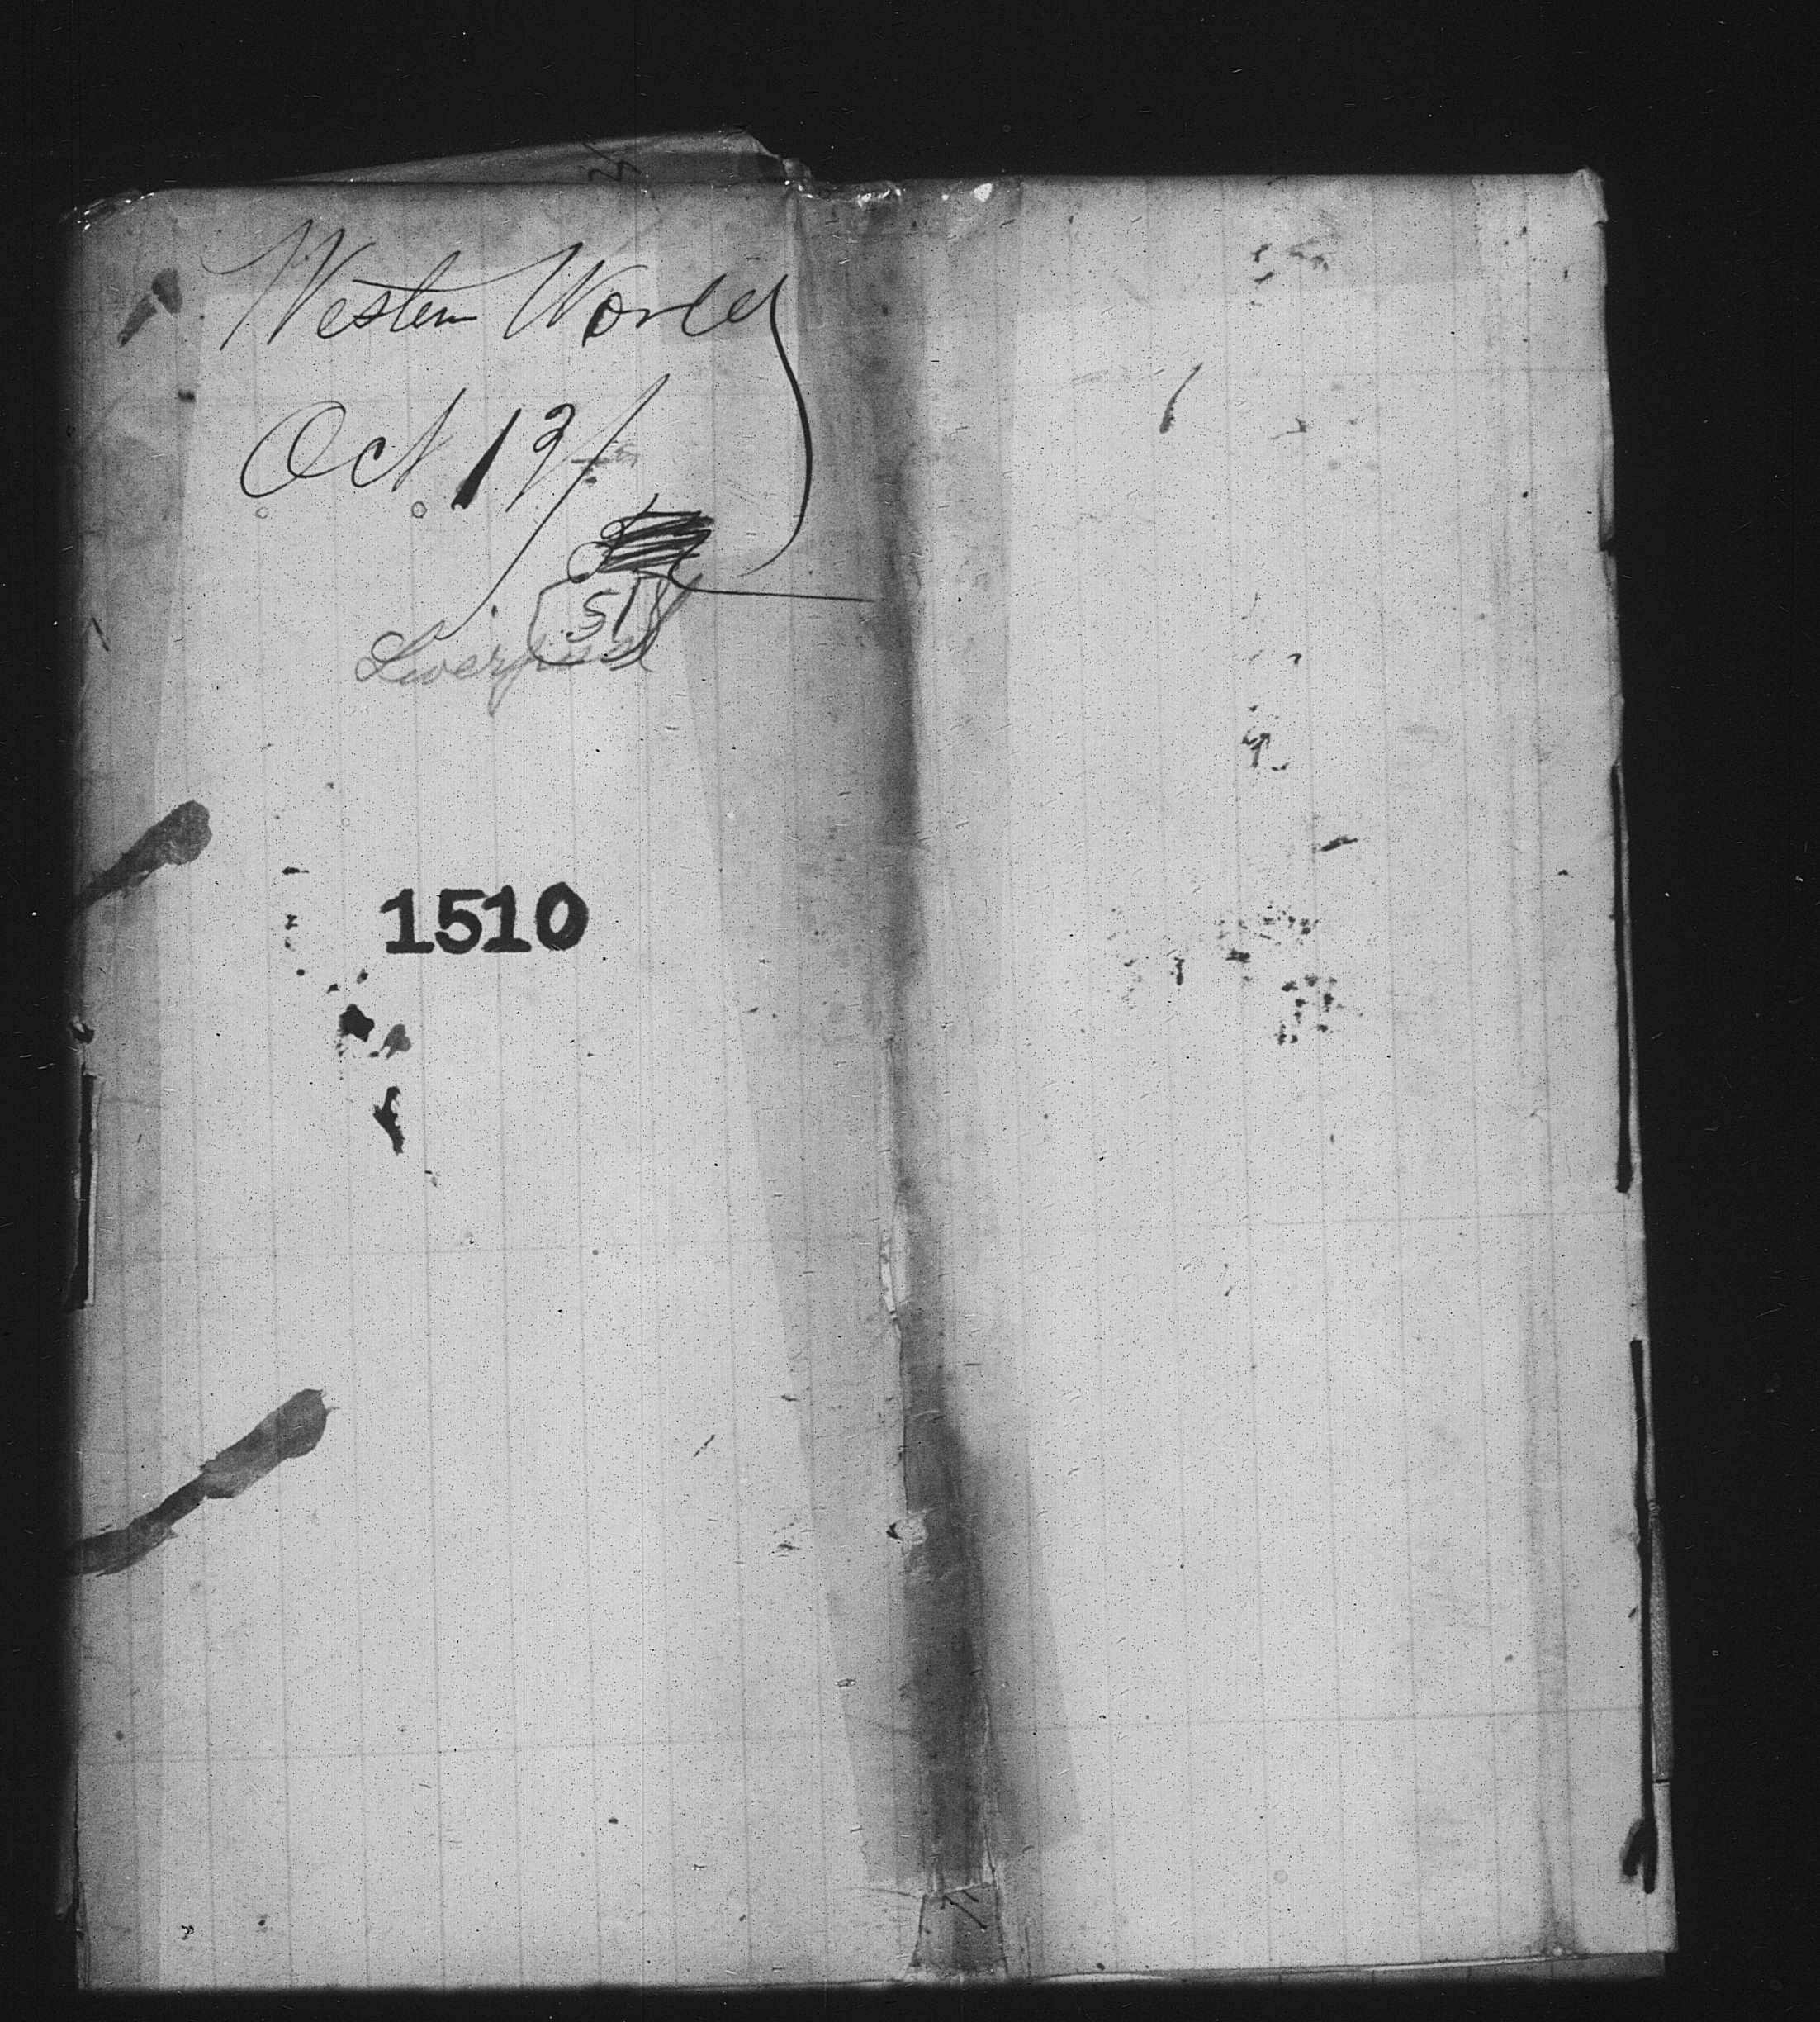 Western World
Oct. 13/
51
Liverpool
1510